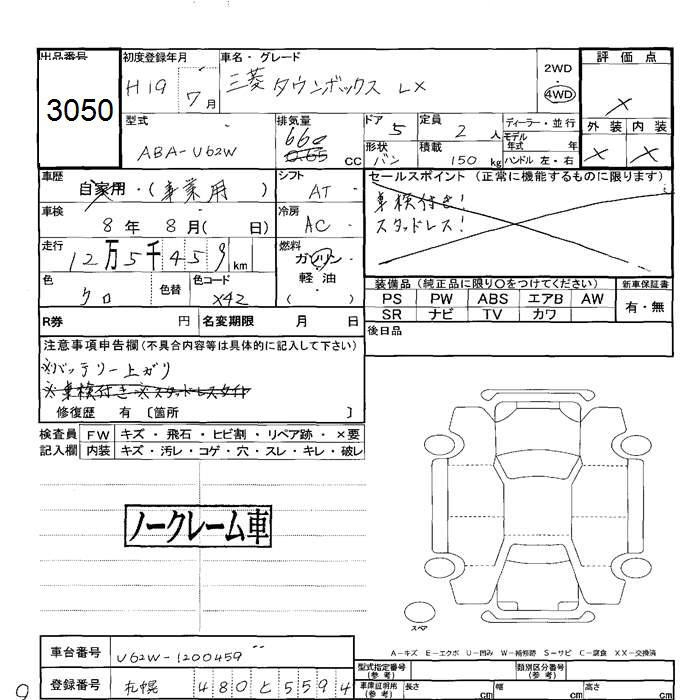 出品番号
3050
初度登録年月
H19 7月
車名・グレード
三菱 タウンボックス LX
2WD
4WD
評価点
×
外装 内装
× ×
型式
ABA-U62W
排気量
660
0.65 CC
ドア 5
定員 2 人
形状 バン
積載 150 kg
ディーラー・並行
モデル年式 年
ハンドル 左・右
車歴
自家用・(事業用)
シフト
AT
セールスポイント (正常に機能するものに限ります)
車検付き!
スタッドレス!
車検
8年 8月( 日)
冷房
AC
走行
12万5千459km
燃料
ガソリン
軽油
( )
色
クロ
色替
色コード
X42
装備品 (純正品に限り○をつけてください)
新車保証書
PS PW ABS エアB AW
有・無
SR ナビ TV カワ
R券 円
名変期限 月 日
後日品
注意事項申告欄(不具合内容等は具体的に記入して下さい)
※バッテリー上がり
※車検付き※スタッドレスタイヤ
修復歴 有 〔箇所 〕
検査員 FW キズ・飛石・ヒビ割・リペア跡・×要
記入欄 内装 キズ・汚レ・コゲ・穴・スレ・キレ・破レ
ノークレーム車
スペア
A-キズ E-エクボ U-凹み W-補修跡 S-サビ C-腐食 XX-交換済
車台番号 U62W-1200459
型式指定番号(参考)
類別区分番号(参考)
登録番号 札幌 480 と 5594
車庫証明用(参考) 長さ cm 幅 cm 高さ cm
9